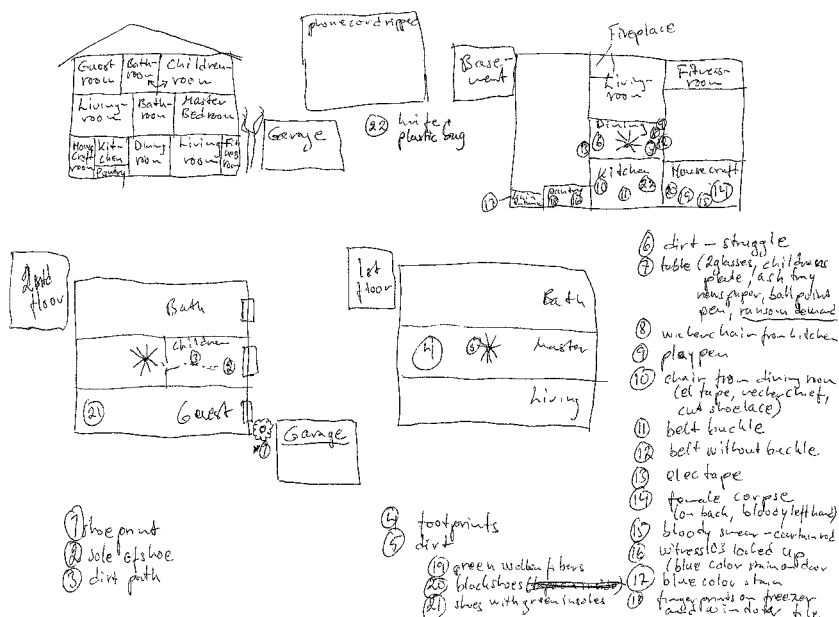 Guest room
Bath-room
Children-room
Living-room
Bath-room
Master Bedroom
House Craft room
Kit-chen
Pantry
Dining room
Living room
Fitness room
Garage
phone cord ripped
22 knife, plastic bag
Base-ment
Fireplace
Living-room
Fitness-room
Dining
6
Kitchen
10 11 22
Housecraft
14
17
pantry
2nd floor
Bath
Children
3
2
21
Guest
Garage
1
1st floor
Bath
4
5
Master
Living
1 shoeprint
2 sole of shoe
3 dirt path
4 footprints
5 dirt
19 green woollen fibers
20 black shoes
21 shoes with green insoles
6 dirt – struggle
7 table (2 glasses, childrens
plate, ash tray
newspaper, ball point
pen, ransom demand
8 wicker chair from kitchen
9 playpen
10 chair from dining room
(el tape, neckerchief,
cut shoelace)
11 belt buckle
12 belt without buckle
13 elec tape
14 female corpse
(on back, bloody left hand)
15 bloody smear – curtain rod
16 witnesses locked up
(blue color stain on door
17 blue color stain
18 fingerprints on freezer
and window